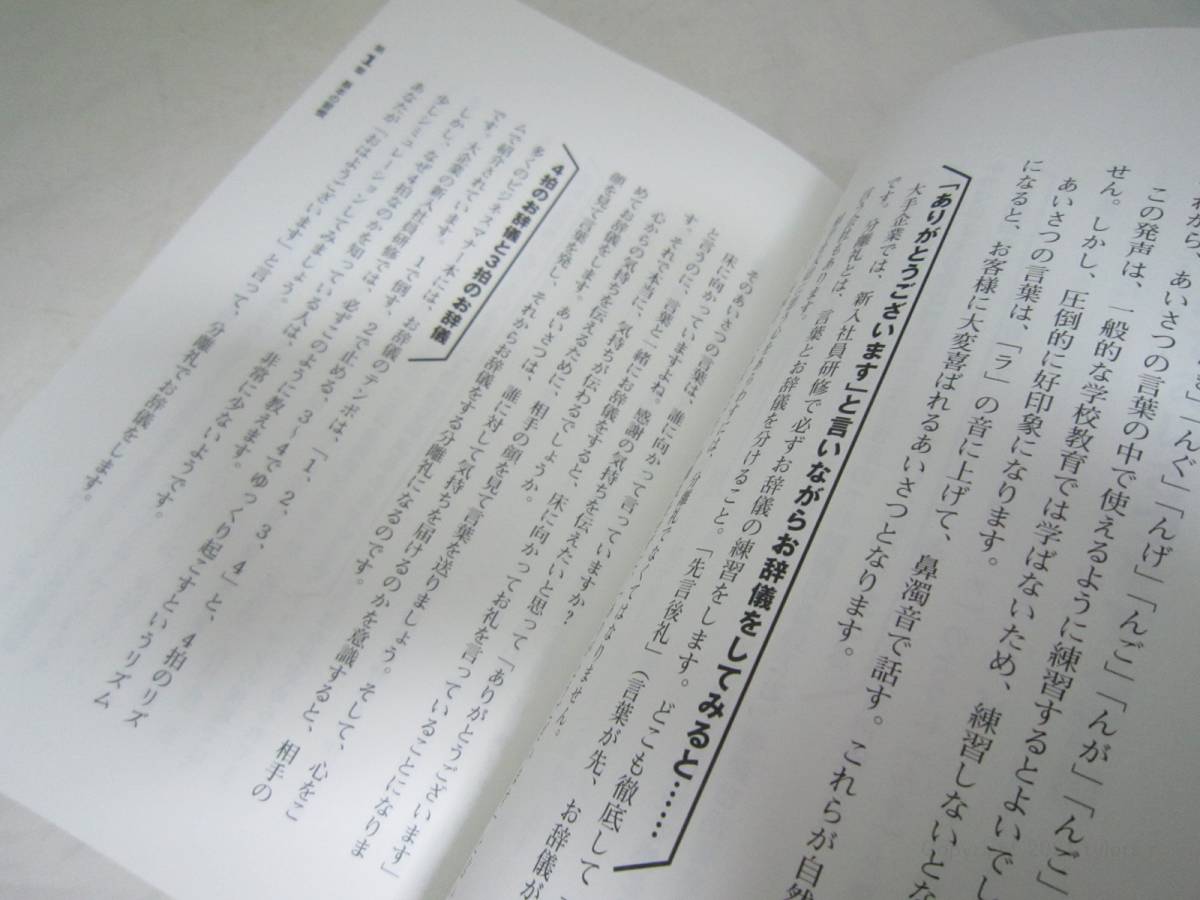 き」「んぐ」「んげ」「んご」「んが」「んご」
れから、あいさつの言葉の中で使えるように練習するとよいでし
この発声は、一般的な学校教育では学ばないため、練習しないとな
せん。しかし、圧倒的に好印象になります。
あいさつの言葉は、「ラ」の音に上げて、鼻濁音で話す。これらが自然
になると、お客様に大変喜ばれるあいさつとなります。
「ありがとうございます」と言いながらお辞儀をしてみると……
大手企業では、新入社員研修で必ずお辞儀の練習をします。どこも徹底して
です。分離礼とは、言葉とお辞儀を分けること。「先言後礼」（言葉が先、お辞儀が
分離礼でなくてはなりません。
そのあいさつの言葉は、誰に向かって言っていますか？
床に向かって、感謝の気持ちを伝えたいと思って「ありがとうございます」
と言うのに、床に向かってお礼を言っていることになりま
す。それで本当に、気持ちが伝わるでしょうか。
心からの気持ちを伝えるために、相手の顔を見て言葉を送りましょう。そして、心をこ
めてお辞儀をします。あいさつは、誰に対して気持ちを届けるのかを意識すると、相手の
顔を見て言葉を発し、それからお辞儀をする分離礼になるのです。
4拍のお辞儀と3拍のお辞儀
多くのビジネスマナー本には、お辞儀のテンポは、「1、2、3、4」と、4拍のリズ
ムで紹介されています。1で倒す、2で止める、3～4でゆっくり起こすというリズム
です。大企業の新入社員研修では、必ずこのように教えます。
しかし、なぜ4拍なのかを知っている人は、非常に少ないようです。
少しシミュレーションしてみましょう。
あなたが「おはようございます」と言って、分離礼でお辞儀をします。